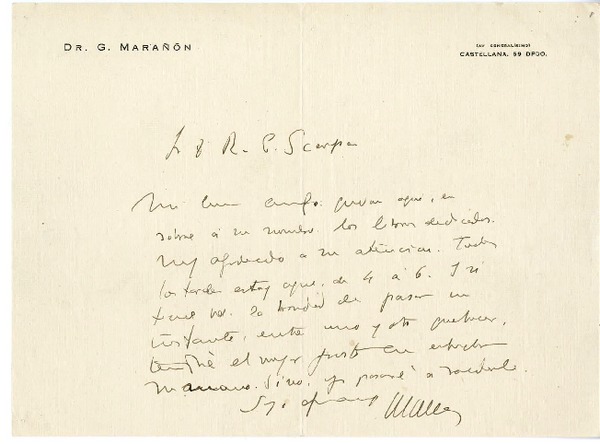 DR. G. MARAÑÓN
(AV. GENERALÍSIMO)
CASTELLANA, 59 DPDO.
S. D. R. E. Scarpa
Mi buen amigo: quedan aquí, en
sobre a su nombre los libros dedicados.
Muy agradecido a su atención. Todas
las tardes estoy aquí, de 4 a 6. Y si
tiene Vd. la bondad de pasar un
instante, entre uno y otro quehacer,
tendré el mejor gusto en estrechar
su mano. Si no, yo pasaré a
Suyo afmo Marañón